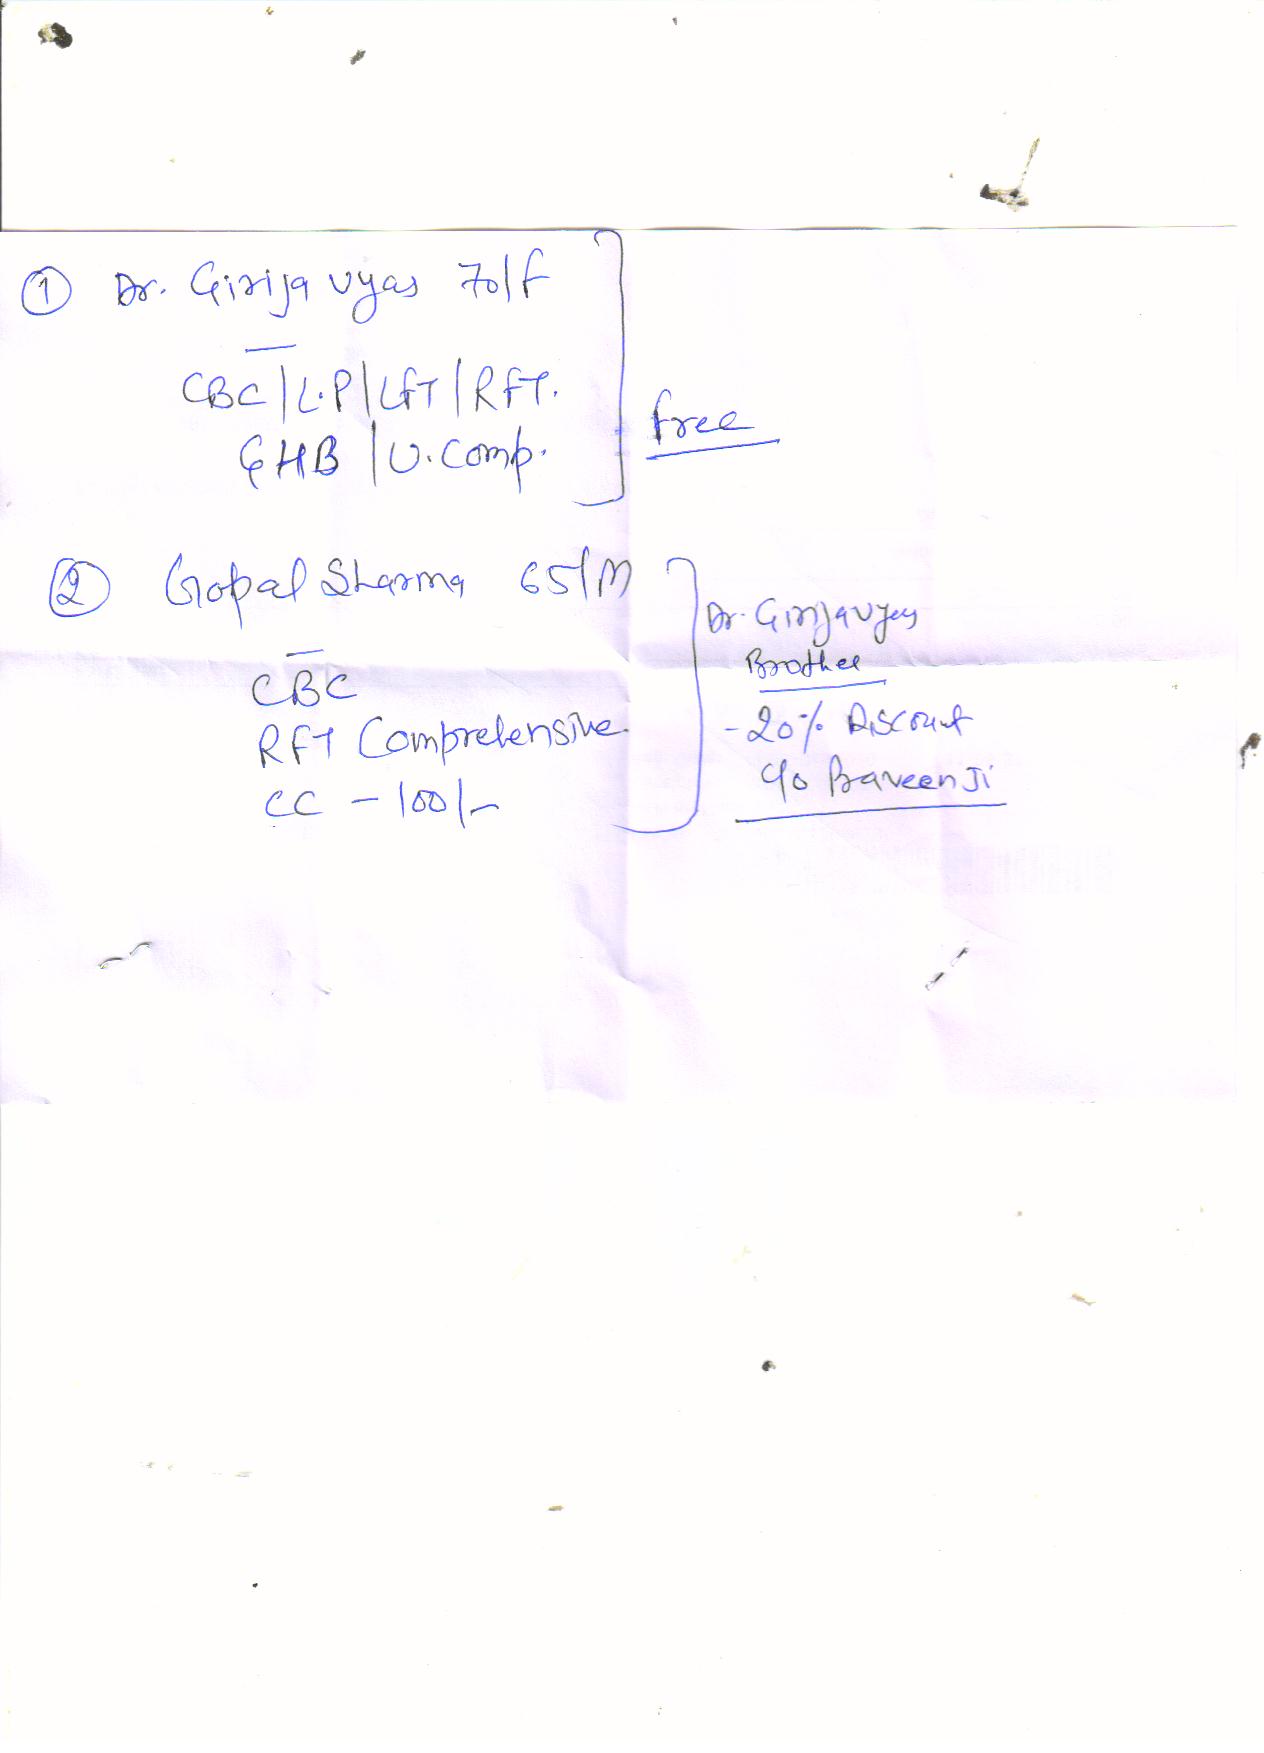 ① Dr. Girija Vyas 70/F
CBC | L.P | LFT | RFT.
GHB | U. Comp.
free
② Gopal Sharma 65/M
CBC
RFT Comprehensive.
CC - 100/-
Dr. Girija Vyas
Brother
- 20% Discount
C/o Praveen Ji